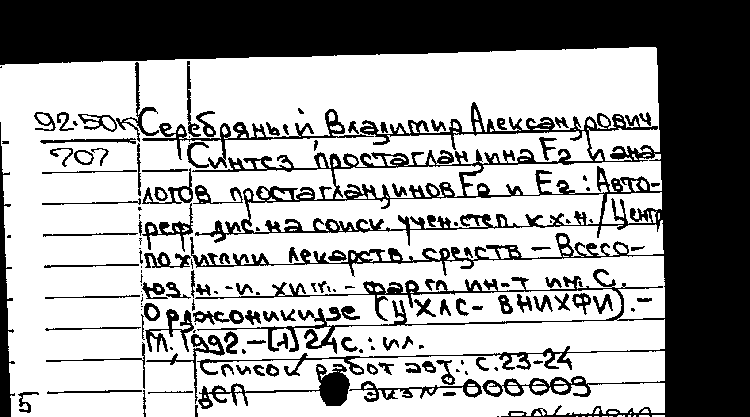 92-50к Серебряный Владимир Александрович
707 Синтез простагландина F2 и ана-
логов простагландинов F2 и E2 : Авто-
реф. дис. на соиск. учен. степ. к.х.н. / Центр
по химии лекарств. средств - Всесо-
юз. н.-и. хим.-фарм. ин-т им. С.
Орджоникидзе (ЦХЛС-ВНИХФИ).-
М., 1992.-[1] 24 с. : ил.
Список работ авт.: с.23-24
ДСП Экз № 000009
5